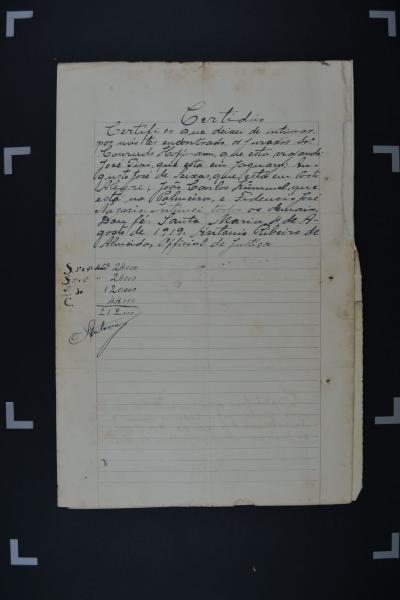 Certidão
Certifico que deixei de intimar
por não ter encontrado, os jurados Sr.
Conrado Hofmann, que está viajando
José Fian, que está em Jaguary, Au-
gusto José de Seixas, que está em Porto
Alegre; João Carlos Kümmel, que
está na Palmeira, e Fidencio José
Nazario intimei os demais.
Dou fé. Santa Maria, de A-
gosto de 1919. Antonio Ribeiro de
Almeida, Official de Justiça
24.000
24.000
120.000
44.000
212.000